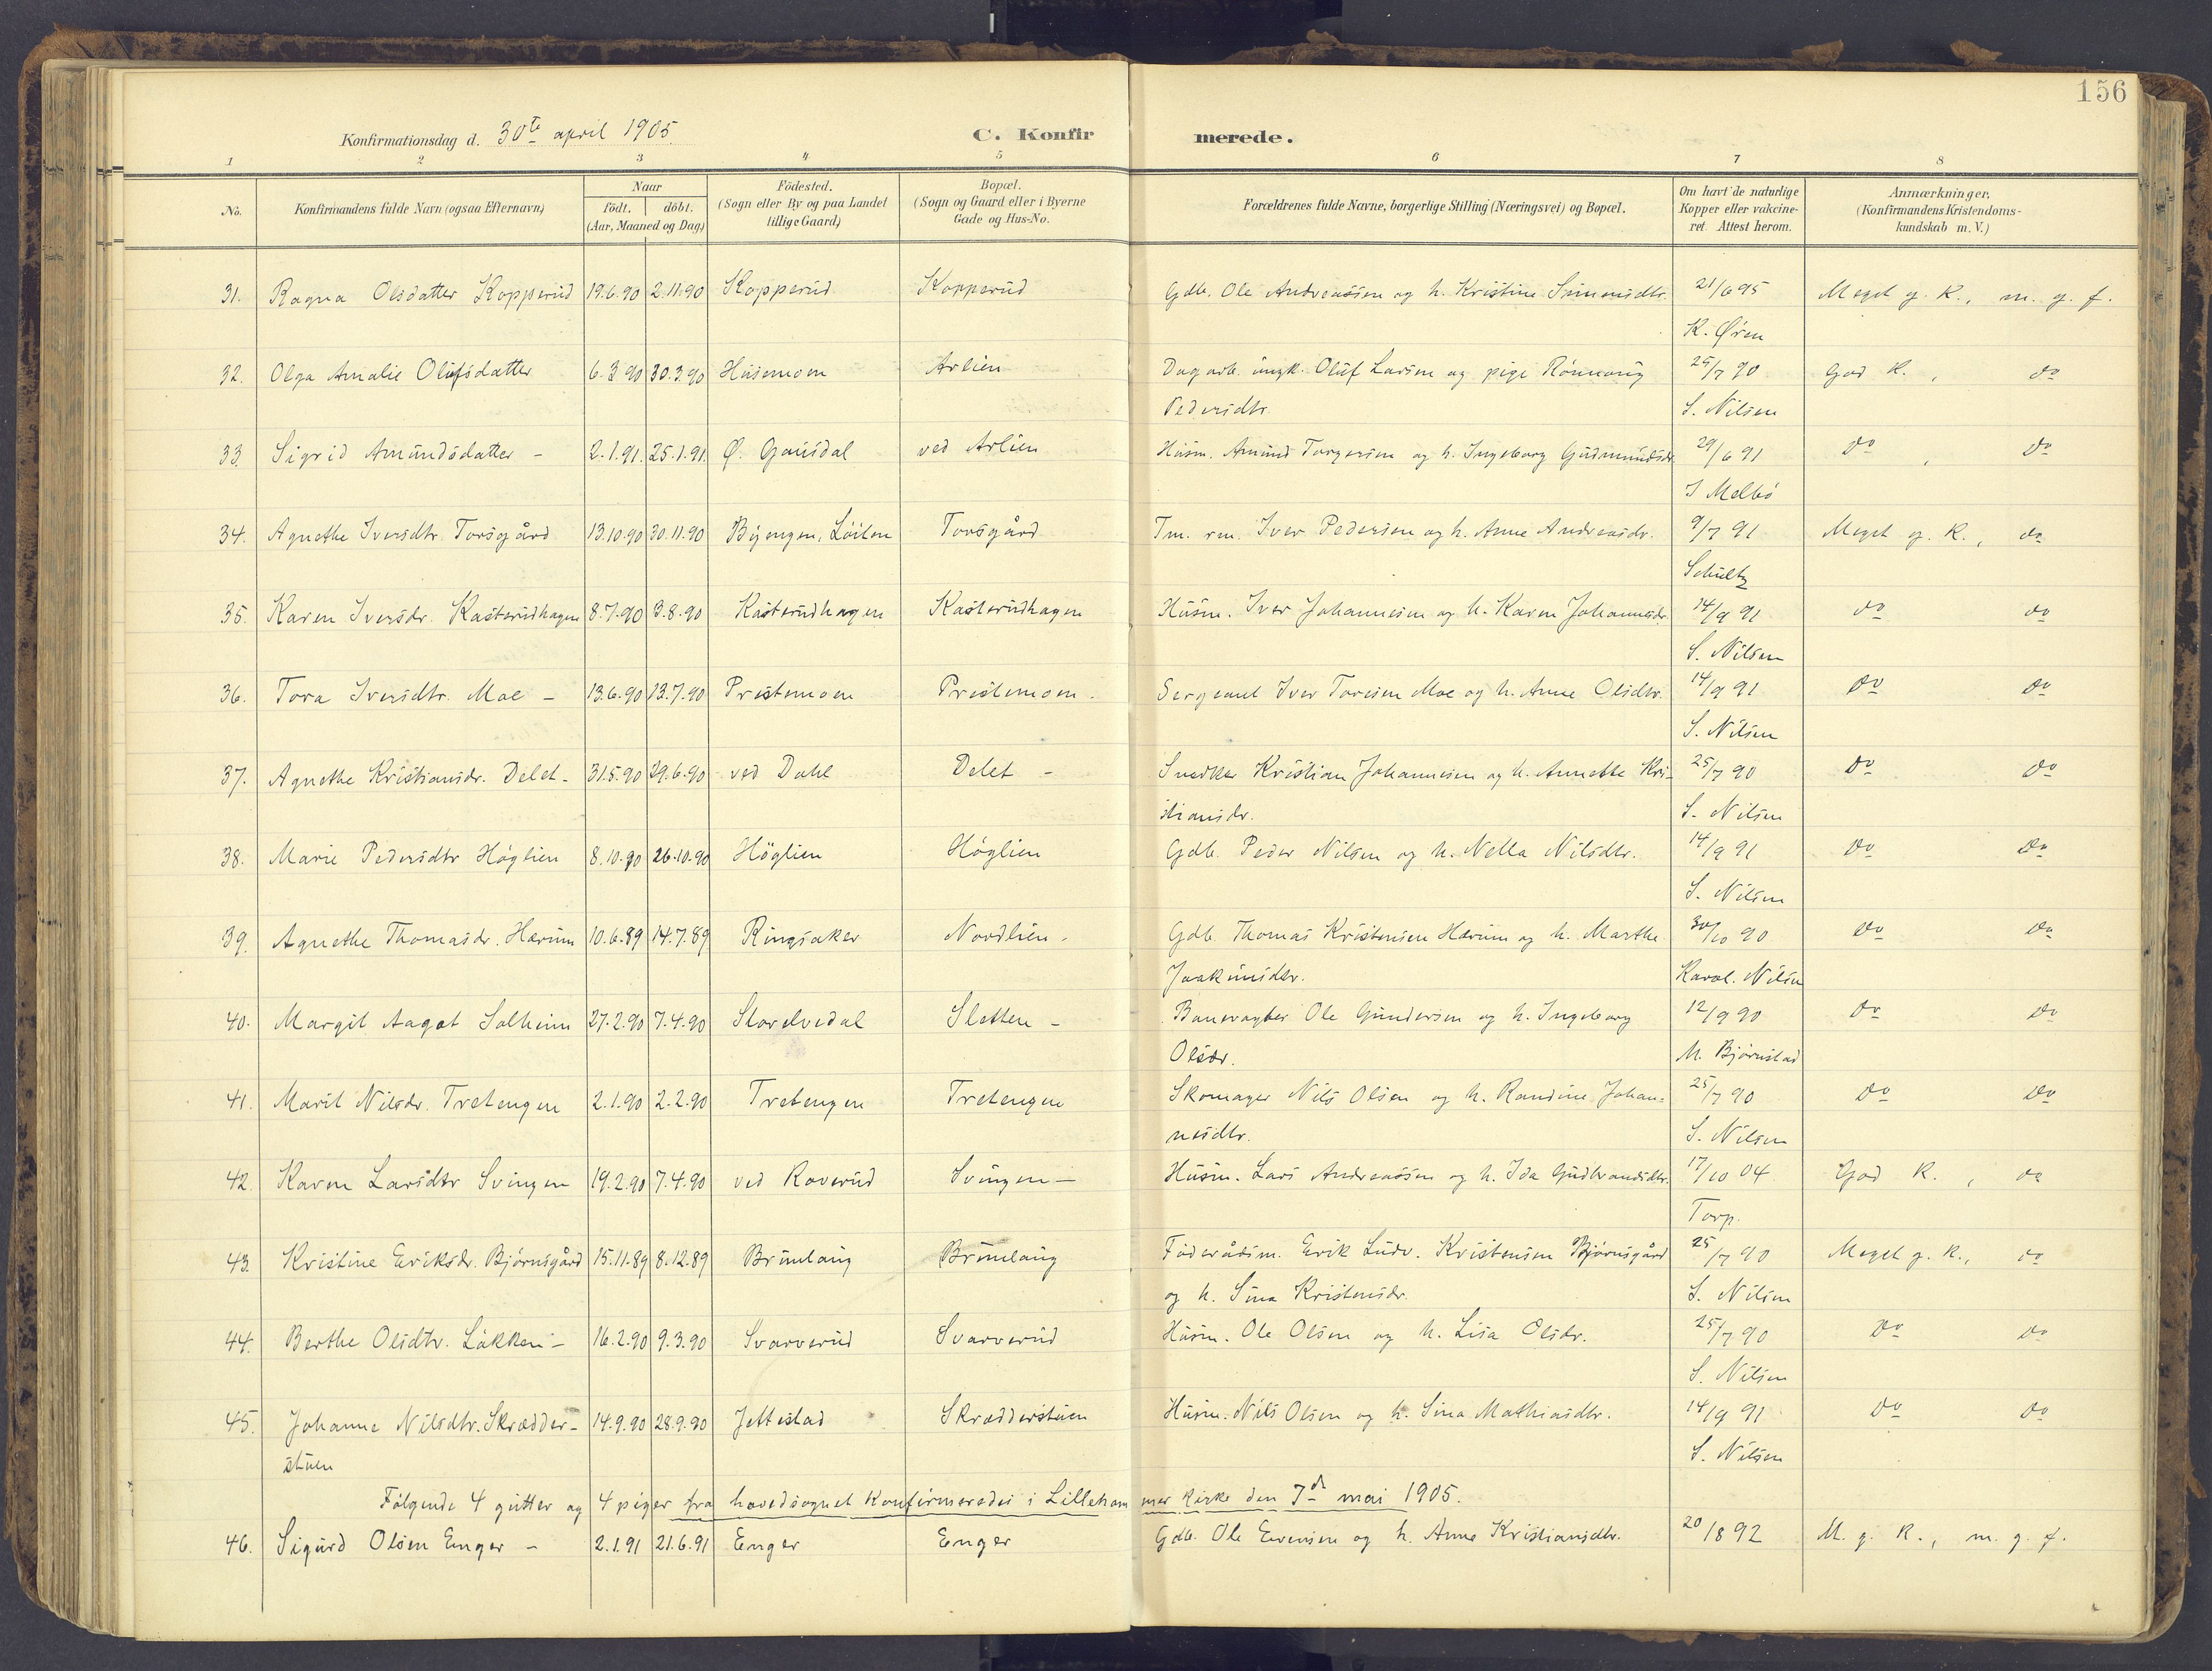 156
Konfirmationsdag d. 30te april 1905.
C. Konfirmerede.
1 2 3 4 5 6 7 8
No.
Konfirmandens fulde Navn (ogsaa Efternavn)
Naar
födt. döbt.
(Aar, Maaned og Dag)
Födested.
(Sogn eller By og paa Landet
tillige Gaard)
Bopæl.
(Sogn og Gaard eller i Byerne
Gade og Hus-No.
Forældrenes fulde Navne, borgerlige Stilling (Næringsvei) og Bopæl.
Om havt de naturlige
Kopper eller vakcine-
ret. Attest herom.
Anmærkninger.
(Konfirmandens Kristendoms-
kundskab m. V.)
31. Ragna Olsdatter Kopperud 19.6.90 2.11.90 Kopperud Kopperud Gdb. Ole Andreassen og h. Kristine Simensdtr. 21/6 95 Meget g. K., m. g. f.
K. Øren
32. Olga Amalie Olufsdatter 6.3.90 30.3.90 Husemoen Arlien Dagarb. ungk. Oluf Larsen og pige Rönnaug 25/7 90 God K., do
Pedersdtr. S. Nilsen
33. Sigrid Amundsdatter - 2.1.91. 25.1.91. Ø. Gausdal ved Arlien Husm. Amund Torgersen og h. Ingeborg Gudmundsdr. 29/6 91 do, do
J Melbö
34. Agnethe Iversdtr. Torsgård 13.10.90 30.11.90 Byengen, Löiten Torsgård Tm. rm. Iver Pedersen og h. Anne Andreasdr. 9/7 91 Meget g. K., do
Schultz
35. Karen Iversdr. Kasterudhagen 8.7.90 3.8.90 Kasterudhagen Kasterudhagen Husm. Iver Johannesen og h. Karen Johannesdr. 14/9 91 do do
S. Nilsen
36. Tora Iversdtr. Moe - 13.6.90 13.7.90 Prestemoen Prestemoen. Sergeant Iver Toresen Moe og h. Anne Olsdtr. 14/9 91 do do
S. Nilsen
37. Agnethe Kristiansdr. Delet - 31.5.90 29.6.90 ved Dahl Delet - Snedker Kristian Johannesen og h. Annette Kri- 25/7 90 do do
stiansdr. S. Nilsen
38. Marie Pedersdtr Höglien 8.10.90 26.10.90 Höglien Höglien Gdb. Peder Nilsen og h. Nella Nilsdtr. 14/9 91 do do
S. Nilsen
39. Agnethe Thomasdr. Hærum 10.6.89 14.7.89 Ringsaker Nordlien - Gdb. Thomas Kristensen Hærum og h. Marthe 30/10 90 do do
Joakimsdtr. Karol. Nilsen
40. Margit Aagot Solheim 27.2.90 7.4.90 Storelvedal Sletten - Banevagter Ole Gundersen og h. Ingeborg 12/9 90 do do
Olsdr. M. Bjørnstad
41. Marit Nilsdr. Tretengen 2.1.90 2.2.90 Tretengen Tretengen Skomager Nils Olsen og h. Randine Johan- 25/7 90 do do
nesdtr. S. Nilsen
42. Karen Larsdtr Svingen 19.2.90 7.4.90 ved Roverud Svingen - Husm. Lars Andreassen og h. Ida Gudbrandsdtr. 17/10 04 God K., do
Torp.
43. Kristine Eriksdr. Bjørnsgård 15.11.89 8.12.89 Brunlaug Brunlaug Föderådsm. Erik Ludv. Kristensen Bjørnsgård 25/7 90 Meget g. K., do
og h. Sina Kristensdr. S. Nilsen
44. Berthe Olsdtr. Løkken - 16.2.90 9.3.90 Svarverud Svarverud Husm. Ole Olsen og h. Lisa Olsdr. 25/7 90 do do
S. Nilsen
45. Johanne Nilsdtr. Skrædder- 14.9.90 28.9.90 Jettestad Skrædderstuen Husm. Nils Olsen og h. Sina Mathiasdtr. 14/9 91 do do
stuen S. Nilsen
Følgende 4 gutter og 4 piger fra hovedsognet konfirmeredes i Lillehammer kirke den 7de mai 1905.
46. Sigurd Olsen Enger - 2.1.91 21.6.91 Enger Enger Gdb. Ole Evensen og h. Anne Kristiansdtr. 20/8 92 M. g. K., m. g. f.